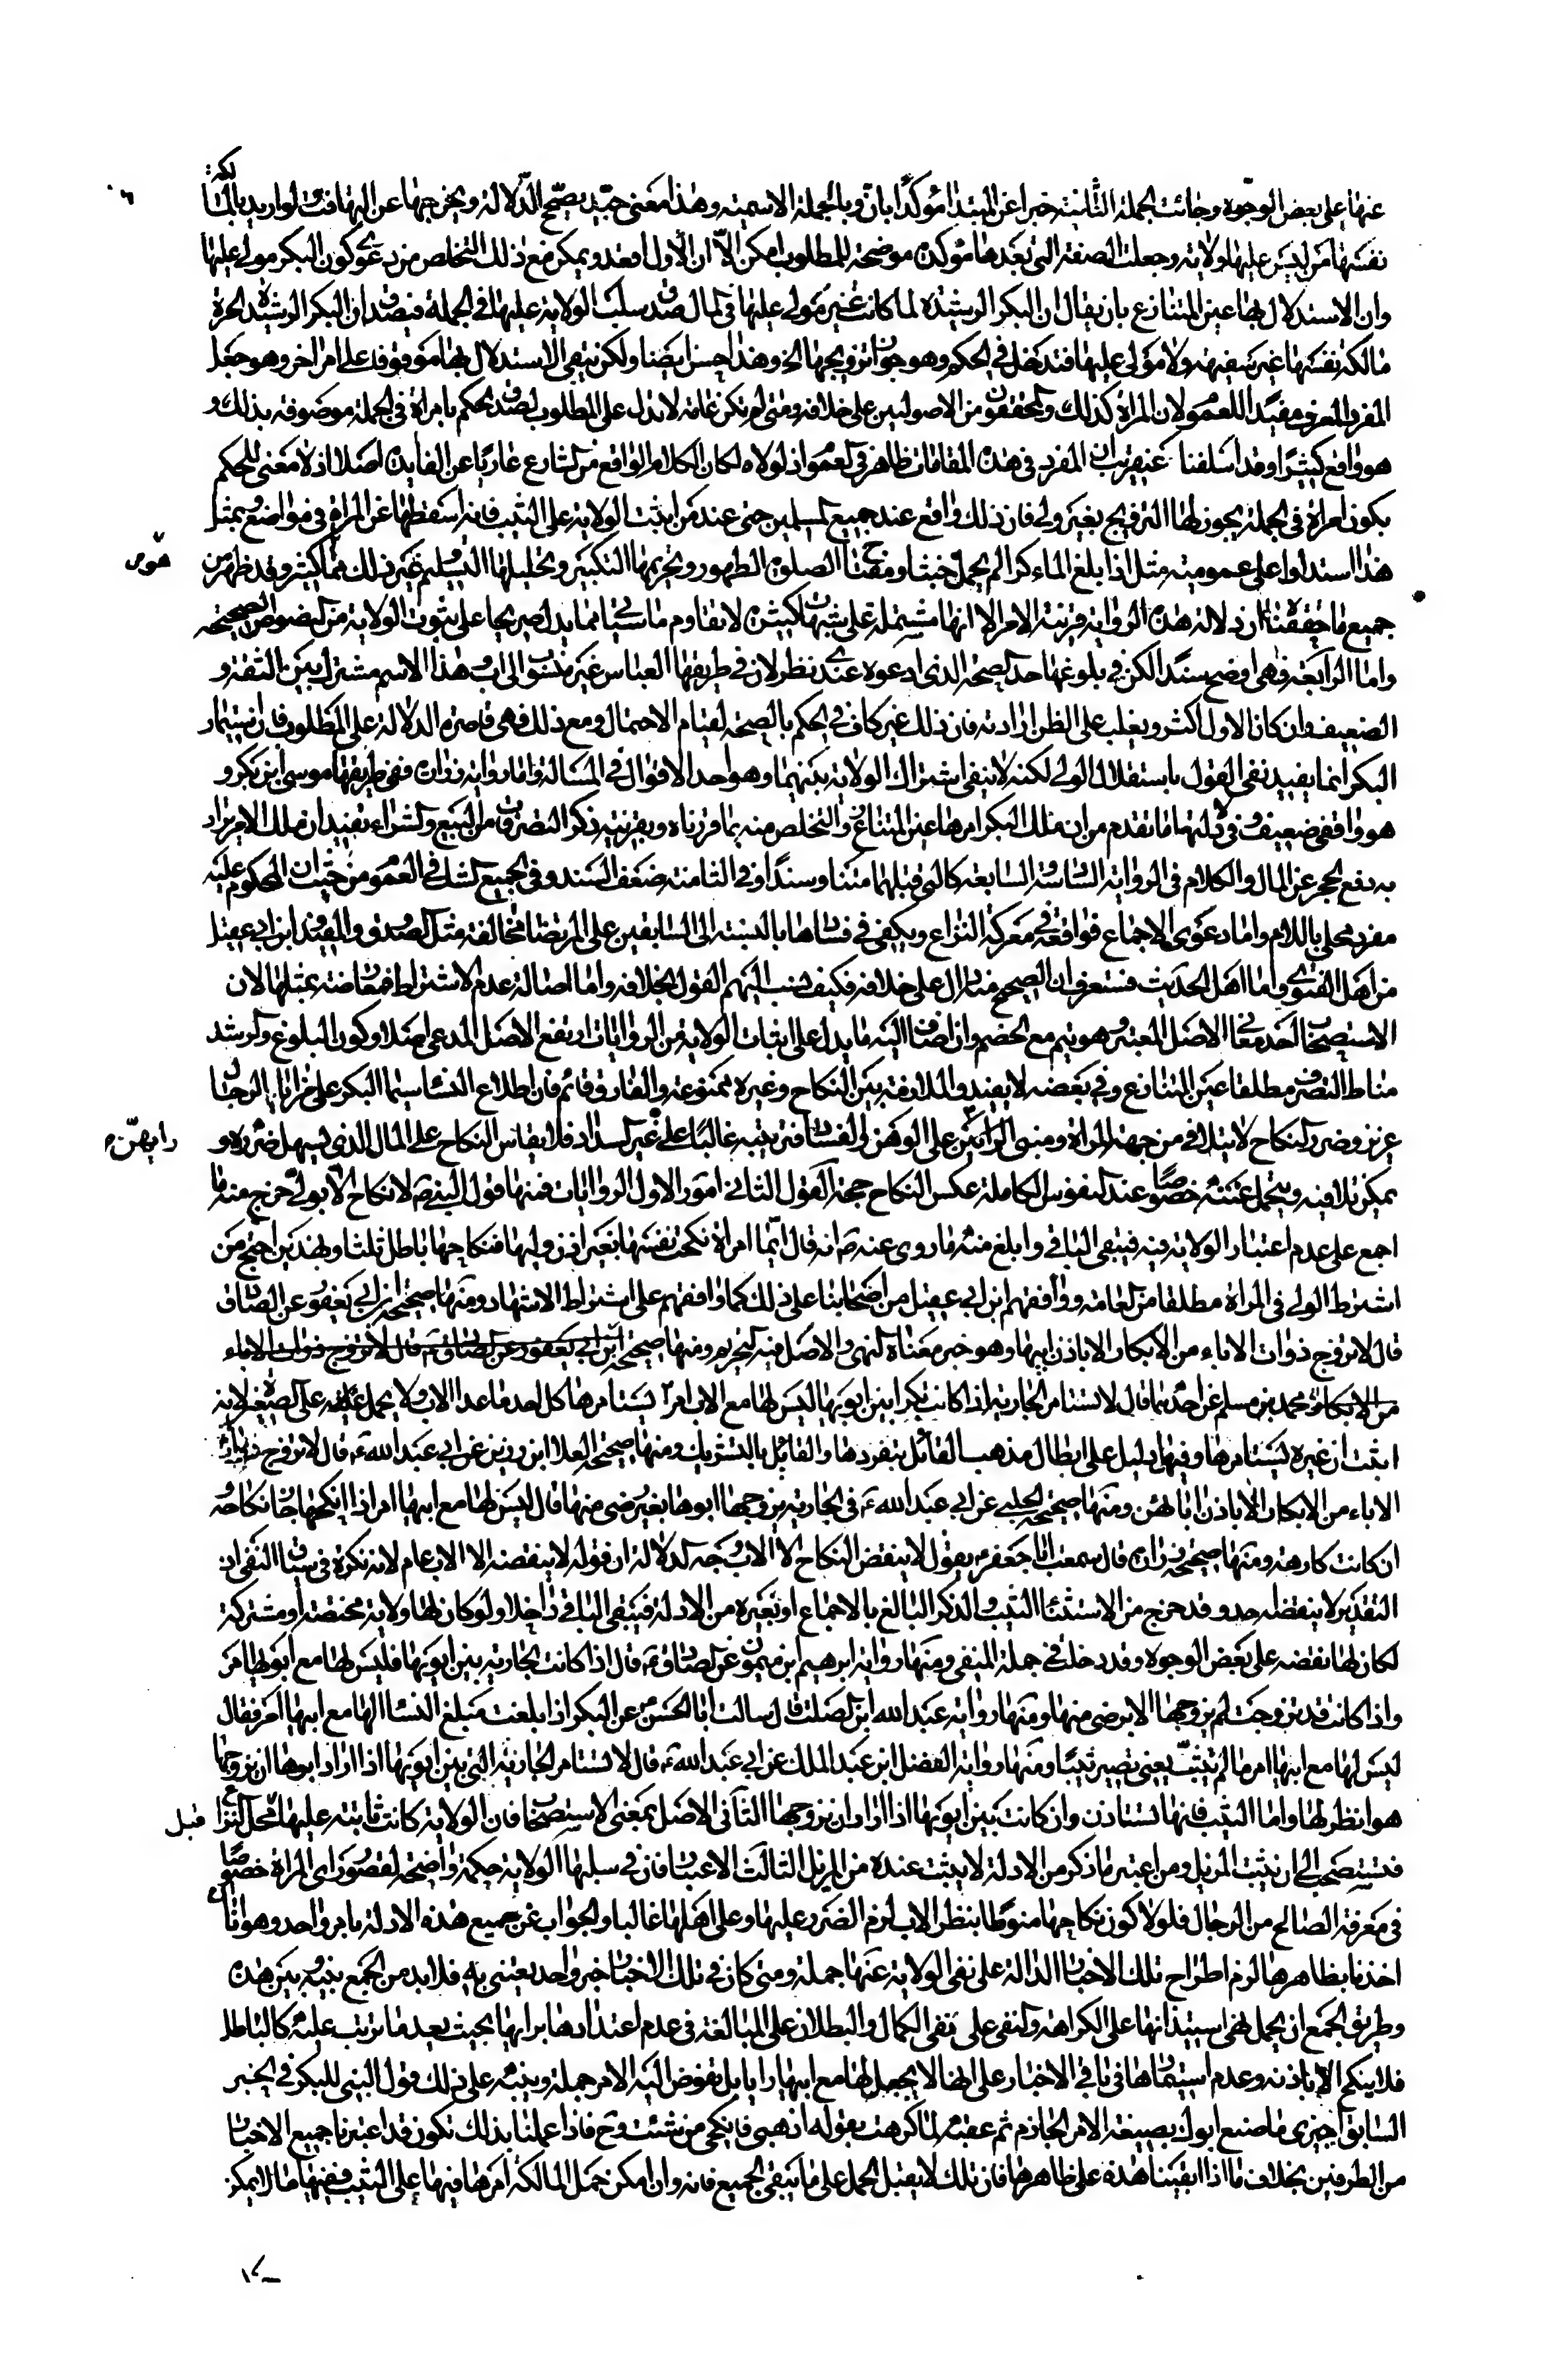 عنها على بعض الوجوه وجائت الجملة الثانية خبرا عن المبتدا مؤكدا بان وبالجملة الاسمية وهذا معنى جيد يصحح الدلالة ويخرجها عن التهافت لو اريد بالمالكة
نفسها من ليس عليها ولاية وجعلت الصفة التى بعدها مؤكدة موضحة للمطلوب امكن الا ان الاول اقعد ويمكن مع ذلك التخلص من دعوى كون البكر مولى عليها
وان الاستدلال بها عين المتنازع بان يقال ان البكر الرشيدة لما كانت غير مولى عليها فى المال صدق سلب الولاية عليها فى الجملة فيصدق ان البكر الرشيدة الحرة
مالكة نفسها غير سفيهة ولا مولى عليها فتدخل فى الحكم وهو جواز تزويجها الخ وهذا حسن ايضا ولكن يبقى الاستدلال بها موقوف على امر اخر وهو جعل
المفرد المعرف مفيدا للعموم لان المراة كذلك والمحققون من الاصوليين على خلافه ومتى لم تكن عامة لا تدل على المطلوب لصدق الحكم بامراة فى الجملة موصوفة بذلك و
هو واقع كثيرا وقد اسلفنا عنقريب ان المفرد فى هذه المقامات ظاهر فى العموم اذ لولاه لكان الكلام الواقع من الشارع عاريا عن الفايدة اصلا اذ لا معنى للحكم
بكون امراة فى الجملة يجوز لها التزويج بغير ولى فان ذلك واقع عند جميع المسلمين حتى عند من اثبت الولاية على الثيب فانه اسقطها عن المراة فى مواضع وبمثل
هذا استدلوا على عمومية مثل اذا بلغ الماء كرا لم يحمل خبثا ومفتاح الصلوة الطهور وتحريمها التكبير وتحليلها التسليم وغير ذلك مما كثير وقد ظهر من
جميع ما حققناه ان دلالة هذه الرواية قريبة الامر الا انها مشتملة على شبهات كثيرة لا تقاوم ما سياتى مما يدل صريحا على ثبوت الولاية من النصوص الصحيحة
واما الرابعة فهى اوضح سندا لكن فى بلوغها حد الصحة الذى ادعوه عندى نظر لان فى طريقها العباس غير منسوب الى اب وهذا الاسم مشترك بين الثقة و
الضعيف وان كان الاول اكثر ويغلب على الظن ارادته فان ذلك غير كاف فى الحكم بالصحة لقيام الاحتمال ومع ذلك فهى قاصرة الدلالة على المطلوب فان استيمار
البكر انما يفيد نفى القول باستقلال الولى لكنه لا ينفى اشتراك الولاية بينهما وهو احد الاقوال فى المسالة واما رواية زرارة ففى طريقها موسى ابن بكر و
هو واقفى ضعيف وفى دلالتها ما تقدم من ان ملك البكر امرها عين المتنازع والتخلص منه بما قررناه وبقرينة ذكر التصرف من البيع والشراء يفيد ان ملك الامر يراد
به رفع الحجر عن المال والكلام فى الرواية السادسة والسابعة كالتى قبلهما متنا وسندا وفى الثامنة ضعف السند وفى الجميع الشك فى العموم من حيث ان المحكوم عليه
مفرد محلى باللام واما دعوى الاجماع فواقعة فى معركة النزاع ويكفى فى فسادها بالنسبة الى السابقين على المرتضى مخالفة مثل الصدوق والمفيد وابن ابى عقيل
من اهل الفتوى واما اهل الحديث فستعرف ان الصحيح منه دال على خلافه فكيف ينسب اليهم القول بخلافه واما اصالة عدم الاشتراط فمعارضة بمثلها لان
الاستصحاب احد معانى الاصل المعتبر وهو يتم مع الخصم وان اضاف اليه ما يدل على اثبات الولاية من الروايات ارتفع الاصل المدعى اصلا وكون البلوغ والرشد
مناط التصرف مطلقا عين المتنازع وفى بعضه لا يفيد والملازمة بين النكاح وغيره ممنوعة والفارق قائم فان اطلاع النساء سيما البكر على خزايا الرجال
عزيز وضرر النكاح لا يتلافى من جهة المراة ومبنى الرايين على الوهن والفساد فترتيبه غالبا على غير السداد فلا يقاس النكاح على المال الذى يسهل ضرره و
يمكن تلافيه ويتحمل غبنه خصوصا عند النفوس الكاملة عكس النكاح حجة القول الثانى امور الاول الروايات فمنها قول النبى ص لا نكاح الا بولى خرج منه ما
اجمع على عدم اعتبار الولاية فيه فيبقى الباقى وابلغ منه ما روى عنه ص انه قال ايما امراة نكحت نفسها بغير اذن وليها فنكاحها باطل ثلثا وبهذين احتج من
اشترط الولى فى المراة مطلقا من العامة ووافقهم ابن ابى عقيل من اصحابنا على ذلك كما وافقهم على اشتراط الاشهاد ومنها صحيحة ابن ابى يعفور عن الصادق
قال لا تزوج ذوات الاباء من الابكار الا باذن ابيها وهو خبر معناه النهى والاصل فيه التحريم ومنها صحيحة ابن ابى يعفور عن الصادق ع قال لا تزوج ذوات الاباء
من الابكار محمد بن مسلم عن احدهما قال لا تستامر الجارية اذا كانت بكرا بين ابويها ليس لها مع الاب امر يستامرها كل احد ما عدا الاب ولا يحمل على الصغيرة لانه
اثبت ان غيره يستامرها وفيها دليل على ابطال مذهب القائل بتفردها والقائل بالتشريك ومنها صحيحة العلا ابن رزين عن ابى عبد الله ع قال لا تزوج ذوات
الاباء من الابكار الا باذن ابائهن ومنها صحيحة الحلبى عن ابى عبد الله ع فى الجارية يزوجها ابوها بغير رضى منها قال ليس لها مع ابيها امر اذا انكحها جاز نكاحه
ان كانت كارهة ومنها صحيحة زرارة قال سمعت ابا جعفر ع يقول لا ينقض النكاح الا الاب وجه الدلالة ان قوله لا ينقضه الا الاب عام لانه نكرة فى سياق النفى ان
التقدير لا ينقضه احد وقد خرج من الاستثناء الثيب والذكر البالغ بالاجماع او بغيره من الادلة فيبقى الباقى داخلا ولو كان لها ولاية مختصة او مشتركة
لكان لها نقضه على بعض الوجوه وقد دخلت فى جملة المنفى ومنها رواية ابرهيم ابن ميمون عن الصادق ع قال اذا كانت الجارية بين ابويها فليس لها مع ابويها امر
واذا كانت قد تزوجت لم يزوجها الا برضى منها ومنها رواية عبد الله ابن الصلت قال سالت ابا الحسن ع عن البكر اذا بلغت مبلغ النساء الها مع ابيها امر فقال
ليس لها مع ابيها امر ما لم تثيب يعنى تصير ثيبا ومنها رواية الفضل ابن عبد الملك عن ابى عبد الله ع قال لا تستامر الجارية التى بين ابويها اذا اراد ابوها ان يزوجها
هو انظر لها واما الثيب فانها تستاذن وان كانت بين ابويها اذا ارادا ان يزوجها الثانى الاصل بمعنى الاستصحاب فان الولاية كانت ثابتة عليها قبل محل النزاع
فتستصحب الى ان يثبت المزيل ومن اعتبر ما ذكر من الادلة لا يثبت عنده من المزيل الثالث الاعتبار فان فى سلبها الولاية حكمة واضحة لقصور راى المراة خصوصا
فى معرفة الصالح من الرجال فلولا كون نكاحها منوطا بنظر الاب لزم الضرر عليها وعلى اهلها غالبا والجواب عن جميع هذه الادلة بامر واحد وهو انا
اخذنا بظاهرها لزم اطراح تلك الاخبار الدالة على نفى الولاية عنها جملة ومتى كان فى تلك الاخبار خبر واحد يعتنى به فلا بد من الجمع بينه وبين هذه
وطريق الجمع ان يحمل نهى استيذانها على الكراهة والنفى على نفى الكمال والبطلان على المبالغة فى عدم اعتدادها برايها بحيث يعد ما يترتب عليه كالباطل
فلا ينكح الا باذنه وعدم استيمارها فى باقى الاخبار على انها لا يجعل لها مع ابيها رايا بل تفوض اليه الامر جملة وينبه على ذلك قول النبى للبكر فى الخبر
السابق اجيزى ما صنع ابوك بصيغة الامر الجازم ثم عقبه لما كرهت بقوله اذهبى فانكحى من شئت وح فاذا عملنا بذلك نكون قد اعتبرنا جميع الاخبار
من الطرفين بخلاف ما اذا ابقينا هذه على ظاهرها فان تلك لا يقبل الحمل على ما يبقى الجميع فانه وان امكن حمل المالكة امرها فيها على الثيب ففيها ما لا يمكن